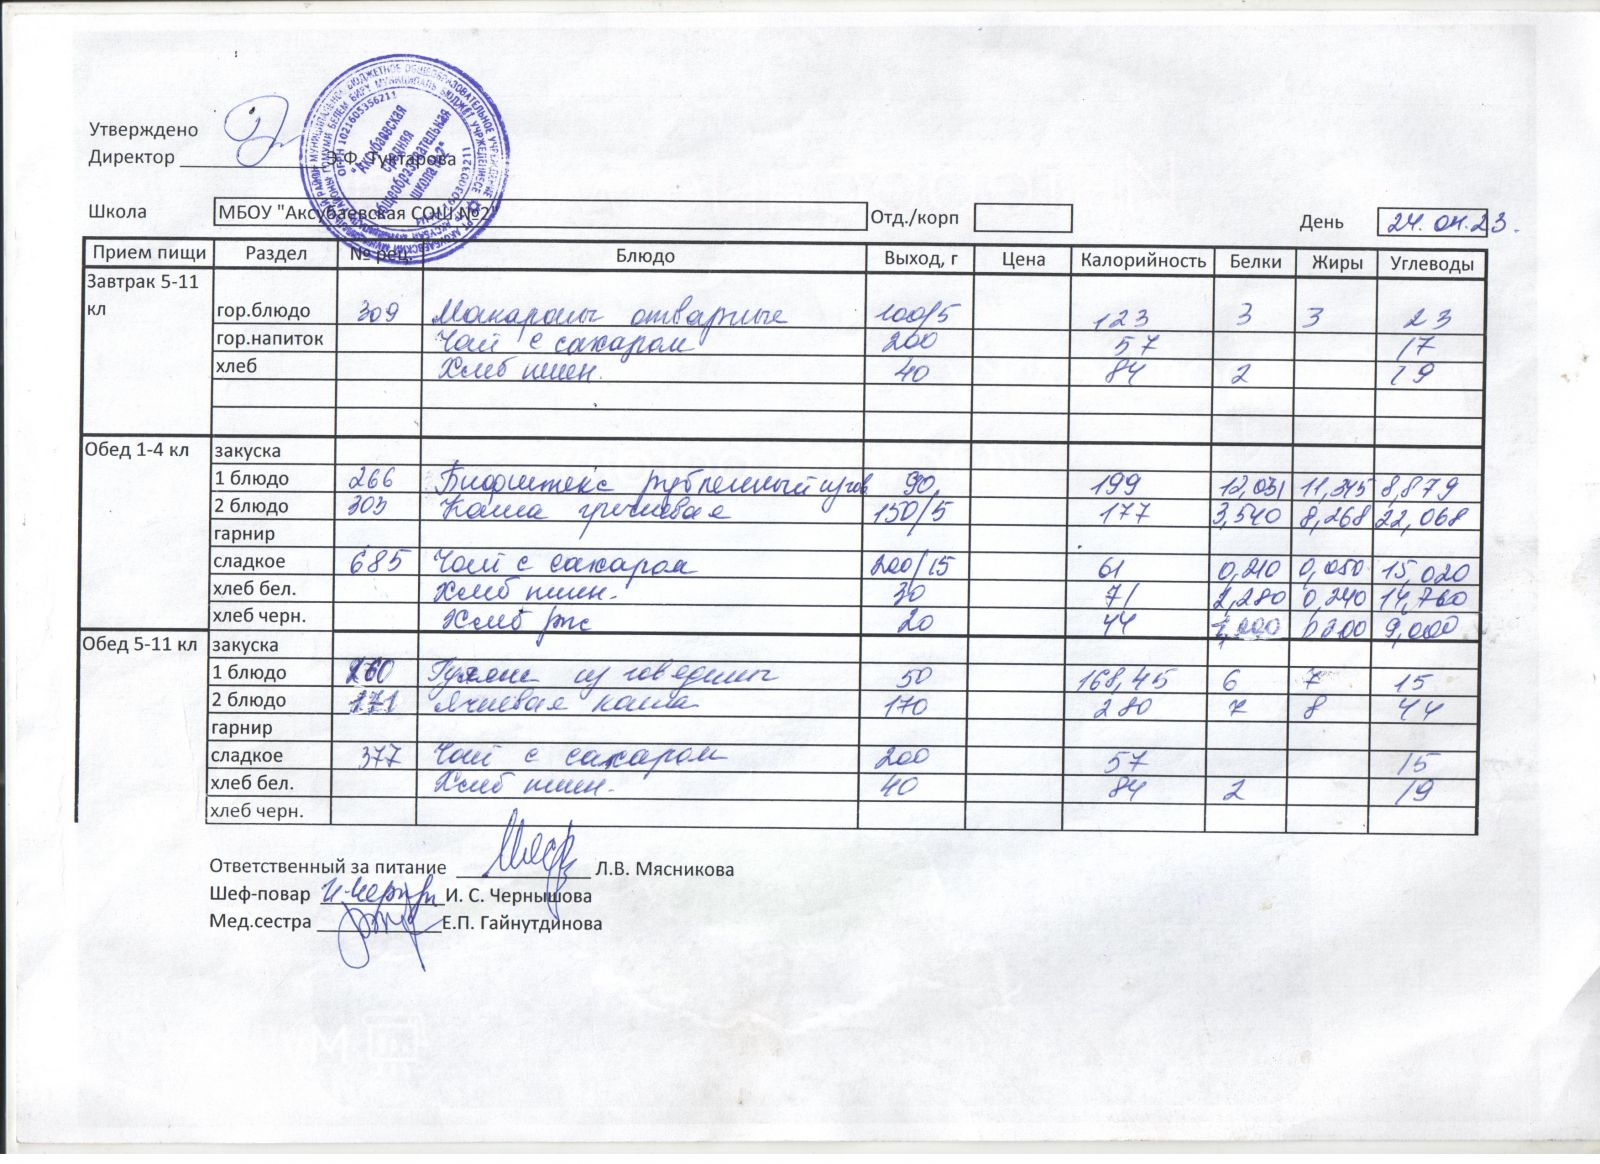 Утверждено
Директор Э.Ф. Туктарова
"Аксубаевская
средняя
общеобразовательная
школа №2"
ОГРН 1021605356211
Школа МБОУ "Аксубаевская СОШ №2" Отд./корп День 24.04.23.
Прием пищи Раздел № рец. Блюдо Выход, г Цена Калорийность Белки Жиры Углеводы
Завтрак 5-11
кл гор.блюдо 309 Макароны отварные 100/5 123 3 3 23
гор.напиток Чай с сахаром 200 57 17
хлеб Хлеб пшен. 40 84 2 19
Обед 1-4 кл закуска
1 блюдо 266 Бифштекс рубленный из гов 90 199 12,031 11,345 8,879
2 блюдо 303 Каша гречневая 150/5 177 3,540 8,268 22,068
гарнир
сладкое 685 Чай с сахаром 200/15 61 0,210 0,050 15,020
хлеб бел. Хлеб пшен. 30 71 2,280 0,240 14,760
хлеб черн. Хлеб рж 20 44 9,000
Обед 5-11 кл закуска
1 блюдо 260 Гуляш из говядины 50 168,45 6 7 15
2 блюдо 171 Ячневая каша 170 280 7 8 44
гарнир
сладкое 377 Чай с сахаром 200 57 15
хлеб бел. Хлеб пшен. 40 84 2 19
хлеб черн.
Ответственный за питание Л.В. Мясникова
Шеф-повар И. С. Чернышова
Мед.сестра Е.П. Гайнутдинова